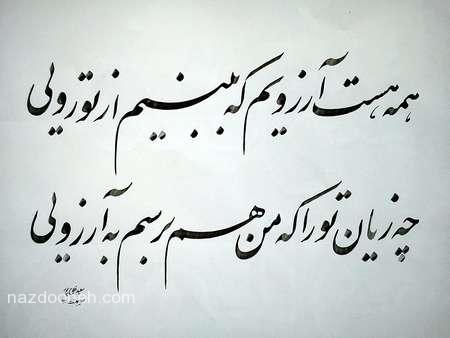 همه هست آرزویم که ببینم از تو رویی
چه زیان تو را که من هم برسم به آرزویی
nazdooneh.com